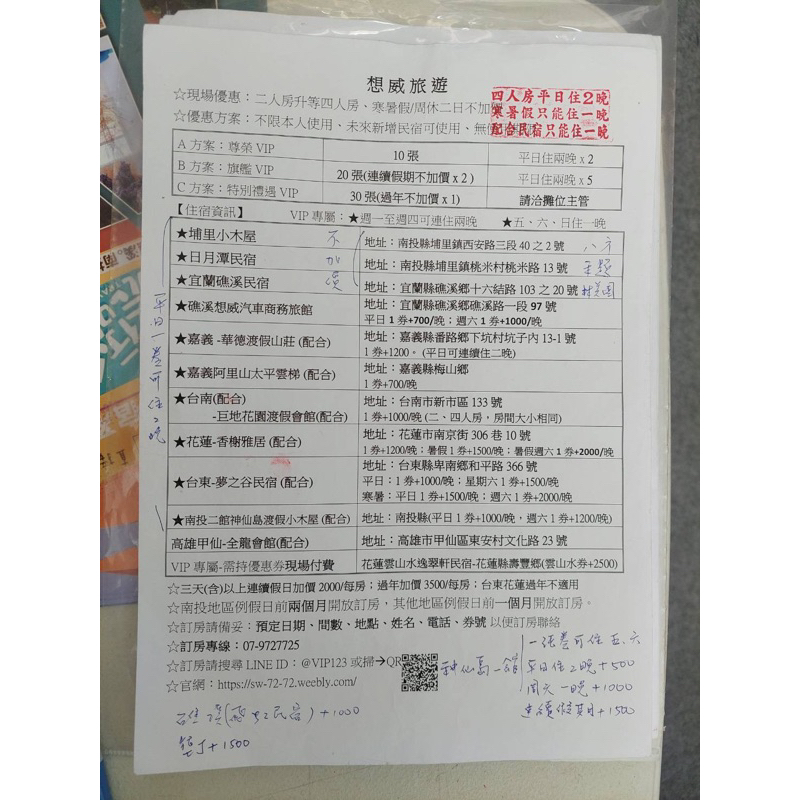 想威旅遊
☆現場優惠：二人房升等四人房、寒暑假/周休二日不加
四人房平日住2晚
寒暑假只能住一晚
配合民宿只能住一晚
☆優惠方案：不限本人使用、未來新增民宿可使用、無
A 方案：尊榮 VIP 10 張 平日住兩晚 x 2
B 方案：旗艦 VIP 20 張(連續假期不加價 x 2 ) 平日住兩晚 x 5
C 方案：特別禮遇 VIP 30 張(過年不加價 x 1) 請洽攤位主管
【住宿資訊】 VIP 專屬：★週一至週四可連住兩晚 ★五、六、日住一晚
★埔里小木屋 不 地址：南投縣埔里鎮西安路三段 40 之 2 號 八方
★日月潭民宿 加 地址：南投縣埔里鎮桃米村桃米路 13 號
★宜蘭礁溪民宿 價 地址：宜蘭縣礁溪鄉十六結路 103 之 20 號
★礁溪想威汽車商務旅館 地址：宜蘭縣礁溪鄉礁溪路一段 97 號
平日 1 券+700/晚；週六 1 券+1000/晚
★嘉義 -華德渡假山莊 (配合) 地址：嘉義縣番路鄉下坑村坑子內 13-1 號
1 券+1200。 (平日可連續住二晚)
★嘉義阿里山太平雲梯 (配合) 地址：嘉義縣梅山鄉
1 券+700/晚
★台南(配合) 地址：台南市新市區 133 號
-巨地花園渡假會館(配合) 1 券+1000/晚 (二、四人房，房間大小相同)
★花蓮-香榭雅居 (配合) 地址：花蓮市南京街 306 巷 10 號
1 券+1200/晚；暑假 1 券+1500/晚；暑假週六 1 券+2000/晚
★台東-夢之谷民宿 (配合) 地址：台東縣卑南鄉和平路 366 號
平日：1 券+1000/晚；星期六 1 券+1500/晚
寒暑：平日 1 券+1500/晚；週六 1 券+2000/晚
★南投二館神仙島渡假小木屋 (配合) 地址：南投縣(平日 1 券+1000/晚，週六 1 券+1200/晚)
高雄甲仙-全龍會館(配合) 地址：高雄市甲仙區東安村文化路 23 號
VIP 專屬-需持優惠券現場付費 花蓮雲山水逸翠軒民宿-花蓮縣壽豐鄉(雲山水券+2500)
平日一券可住2晚
☆三天(含)以上連續假日加價 2000/每房；過年加價 3500/每房；台東花蓮過年不適用
☆南投地區例假日前兩個月開放訂房，其他地區例假日前一個月開放訂房。
☆訂房請備妥：預定日期、間數、地點、姓名、電話、券號 以便訂房聯絡
☆訂房專線：07-9727725
☆訂房請搜尋 LINE ID：@VIP123 或掃→QR
☆官網：https://sw-72-72.weebly.com/
神仙島一館
一張券可住五、六
平日住2晚+500
周六一晚+1000
連續假期+1500
+1000
墾丁+1500